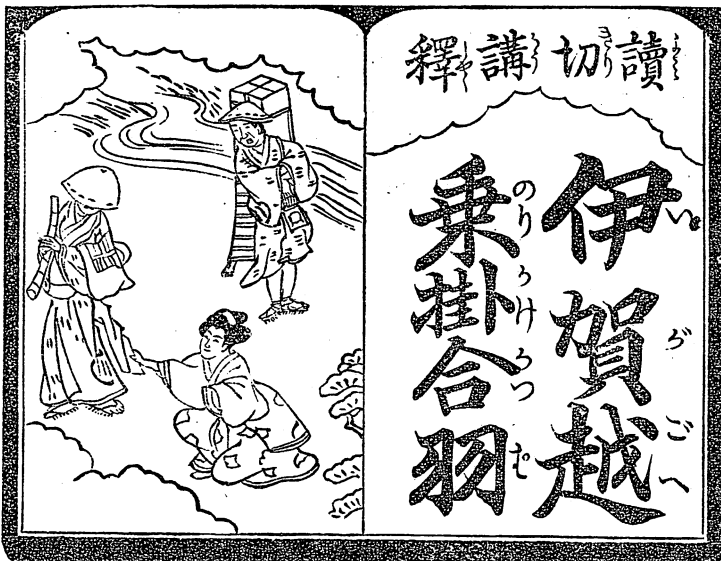 讀切講釋
伊賀越
乗掛合羽